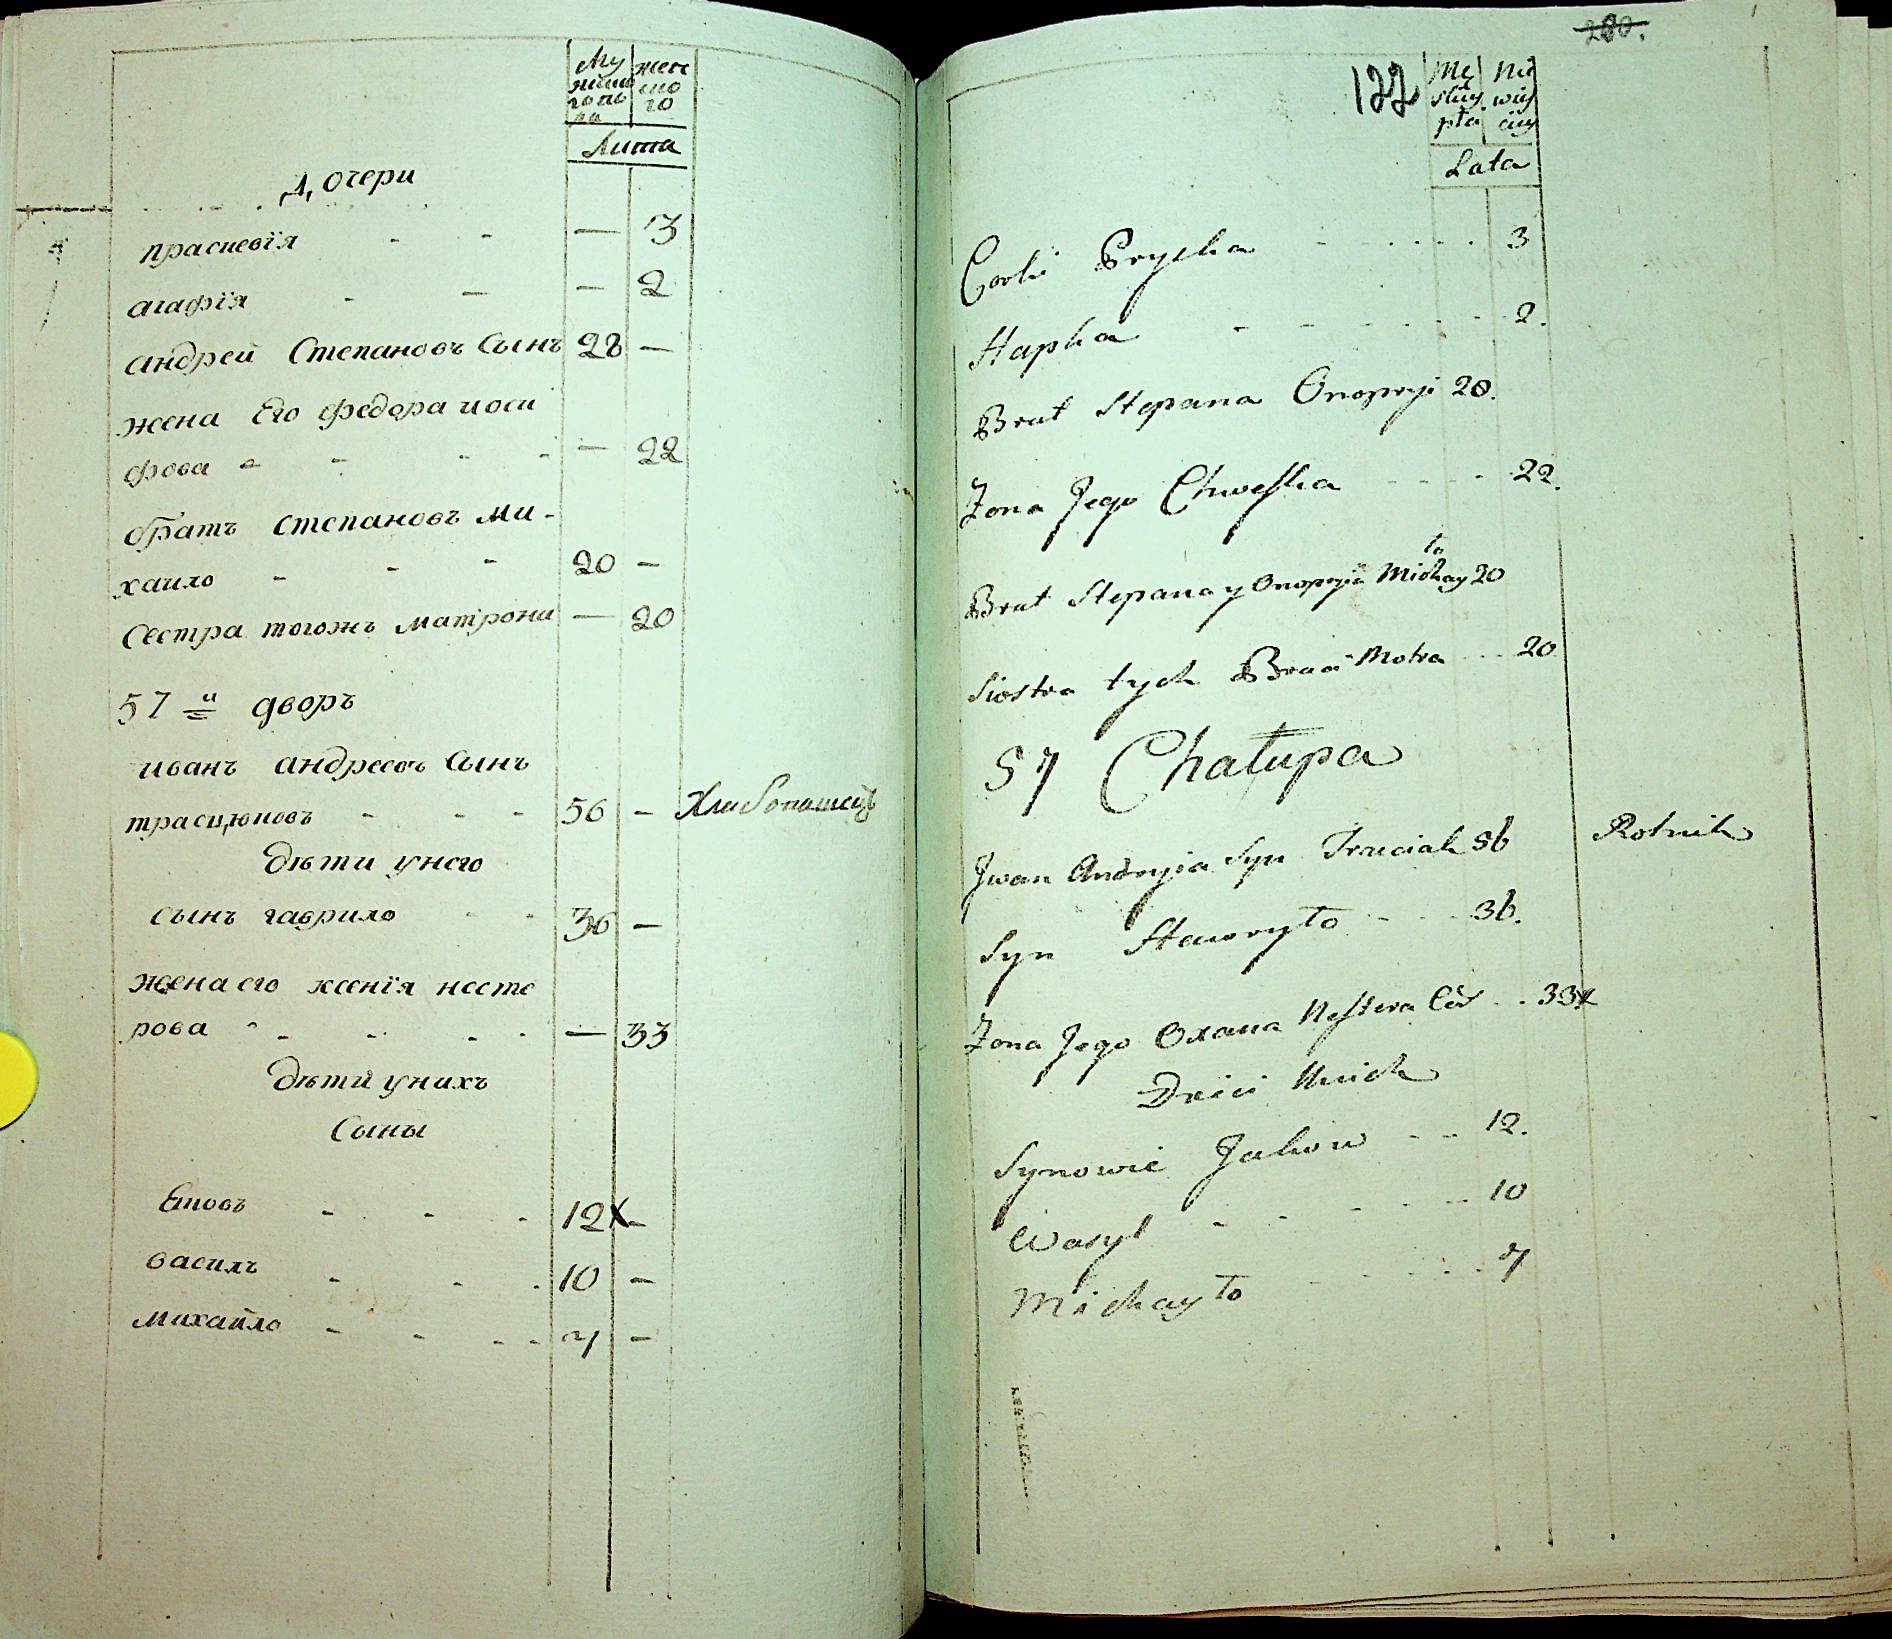 Му
жеско
го по
ла
жен
ско
го
Лита
Дочери
прасковїя - - — 3
агафїя - — — 2
андрей Степановъ Сынъ 28 —
жена Его федора иоси
фова - - - - — 22
братъ степановъ ми-
хаило - - - 20 —
Сестра тогожъ матрона — 20
57 й дворъ
иванъ андреевъ Сынъ
трасцюновъ - - - 56 — Хлибопашецъ
дѣти унего
сынъ гаврило - - 36 —
жена его ксенїя несте
рова - - - - - — 33
дѣти унихъ
Сыны
Яковъ - - - 12 x -
василъ - - - 10 —
михайло - - - - 7 —
280.
122
Mę
skiey
płci
Nie
wieś
ciey
Lata
Corki Pryska - - - - - 3
Hapka - - - - - - 2.
Brat Stepana Onopryi 28.
Zona Jego Chweska - - - - 22.
Brat Stepana y Onopryia Michayło 20
Siostra tych Braci Motra - - - 20
57 Chałupa
Jwan Andryia Syn Trasciak 56 Rolnik
Syn Hawryło - - - 36.
Zona Jego Oxana Nestera Cór - - 33x
Dzieci Unich
Synowie Jakow - - 12.
Wasyl - - - - - 10
Michayło - - - - - 7